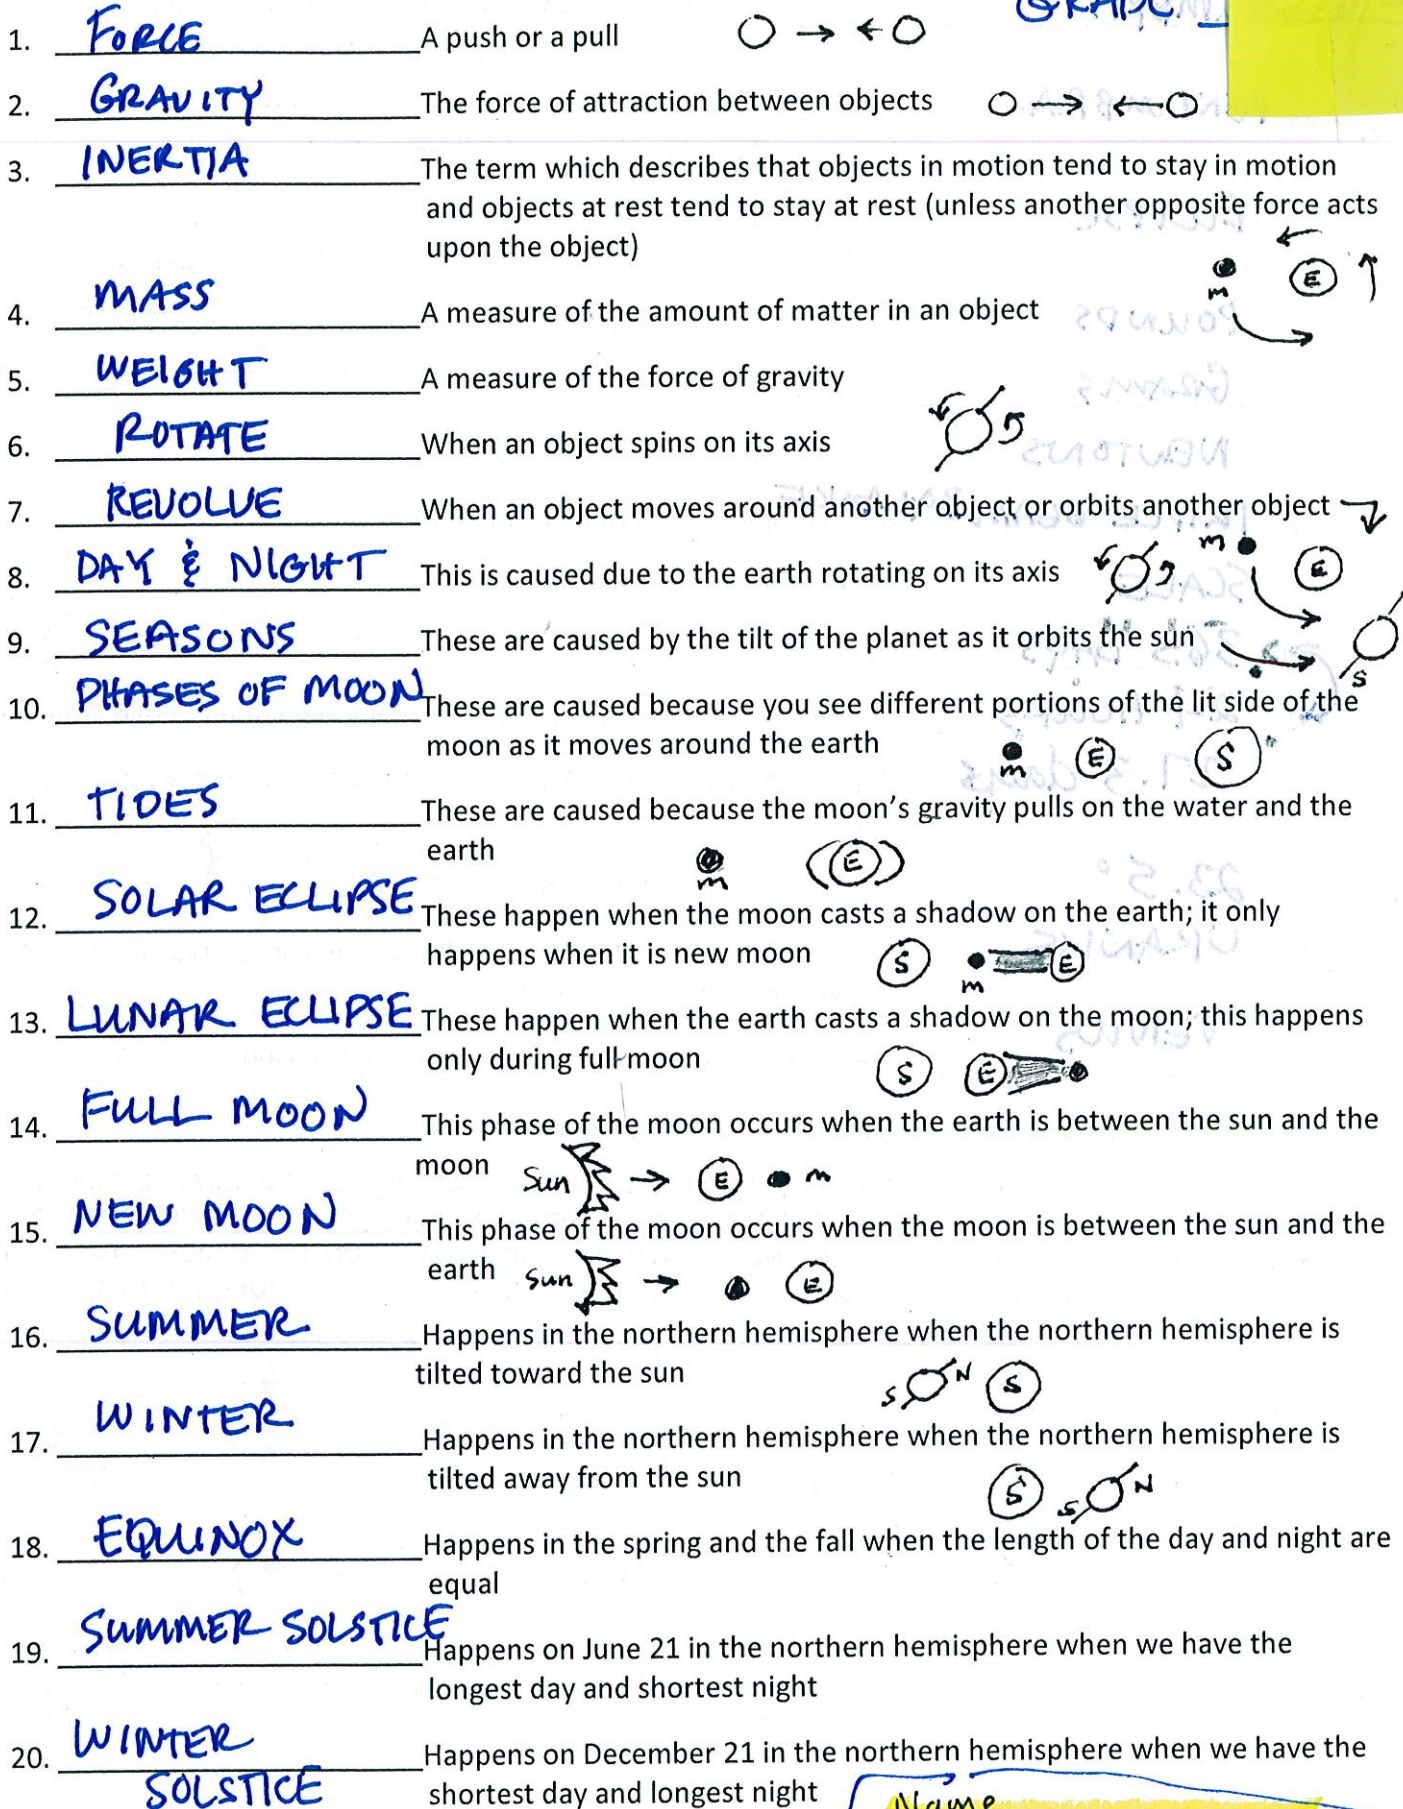 GRADE
1. FORCE A push or a pull
2. GRAVITY The force of attraction between objects
3. INERTIA The term which describes that objects in motion tend to stay in motion
and objects at rest tend to stay at rest (unless another opposite force acts
upon the object)
m E
4. MASS A measure of the amount of matter in an object
5. WEIGHT A measure of the force of gravity
6. ROTATE When an object spins on its axis
7. REVOLVE When an object moves around another object or orbits another object
m E
8. DAY & NIGHT This is caused due to the earth rotating on its axis
9. SEASONS These are caused by the tilt of the planet as it orbits the sun
S
10. PHASES OF MOON These are caused because you see different portions of the lit side of the
moon as it moves around the earth m E S
11. TIDES These are caused because the moon's gravity pulls on the water and the
earth m E
12. SOLAR ECLIPSE These happen when the moon casts a shadow on the earth; it only
happens when it is new moon S m E
13. LUNAR ECLIPSE These happen when the earth casts a shadow on the moon; this happens
only during full moon S E
14. FULL MOON This phase of the moon occurs when the earth is between the sun and the
moon Sun E m
15. NEW MOON This phase of the moon occurs when the moon is between the sun and the
earth Sun E
16. SUMMER Happens in the northern hemisphere when the northern hemisphere is
tilted toward the sun S N S
17. WINTER Happens in the northern hemisphere when the northern hemisphere is
tilted away from the sun S S N
18. EQUINOX Happens in the spring and the fall when the length of the day and night are
equal
19. SUMMER SOLSTICE Happens on June 21 in the northern hemisphere when we have the
longest day and shortest night
20. WINTER Happens on December 21 in the northern hemisphere when we have the
SOLSTICE shortest day and longest night
Name